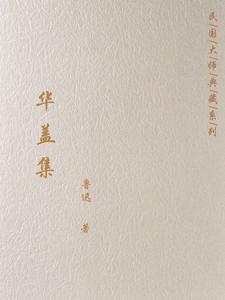 民|国|大|师|典|藏|系|列
华盖集
鲁迅 著